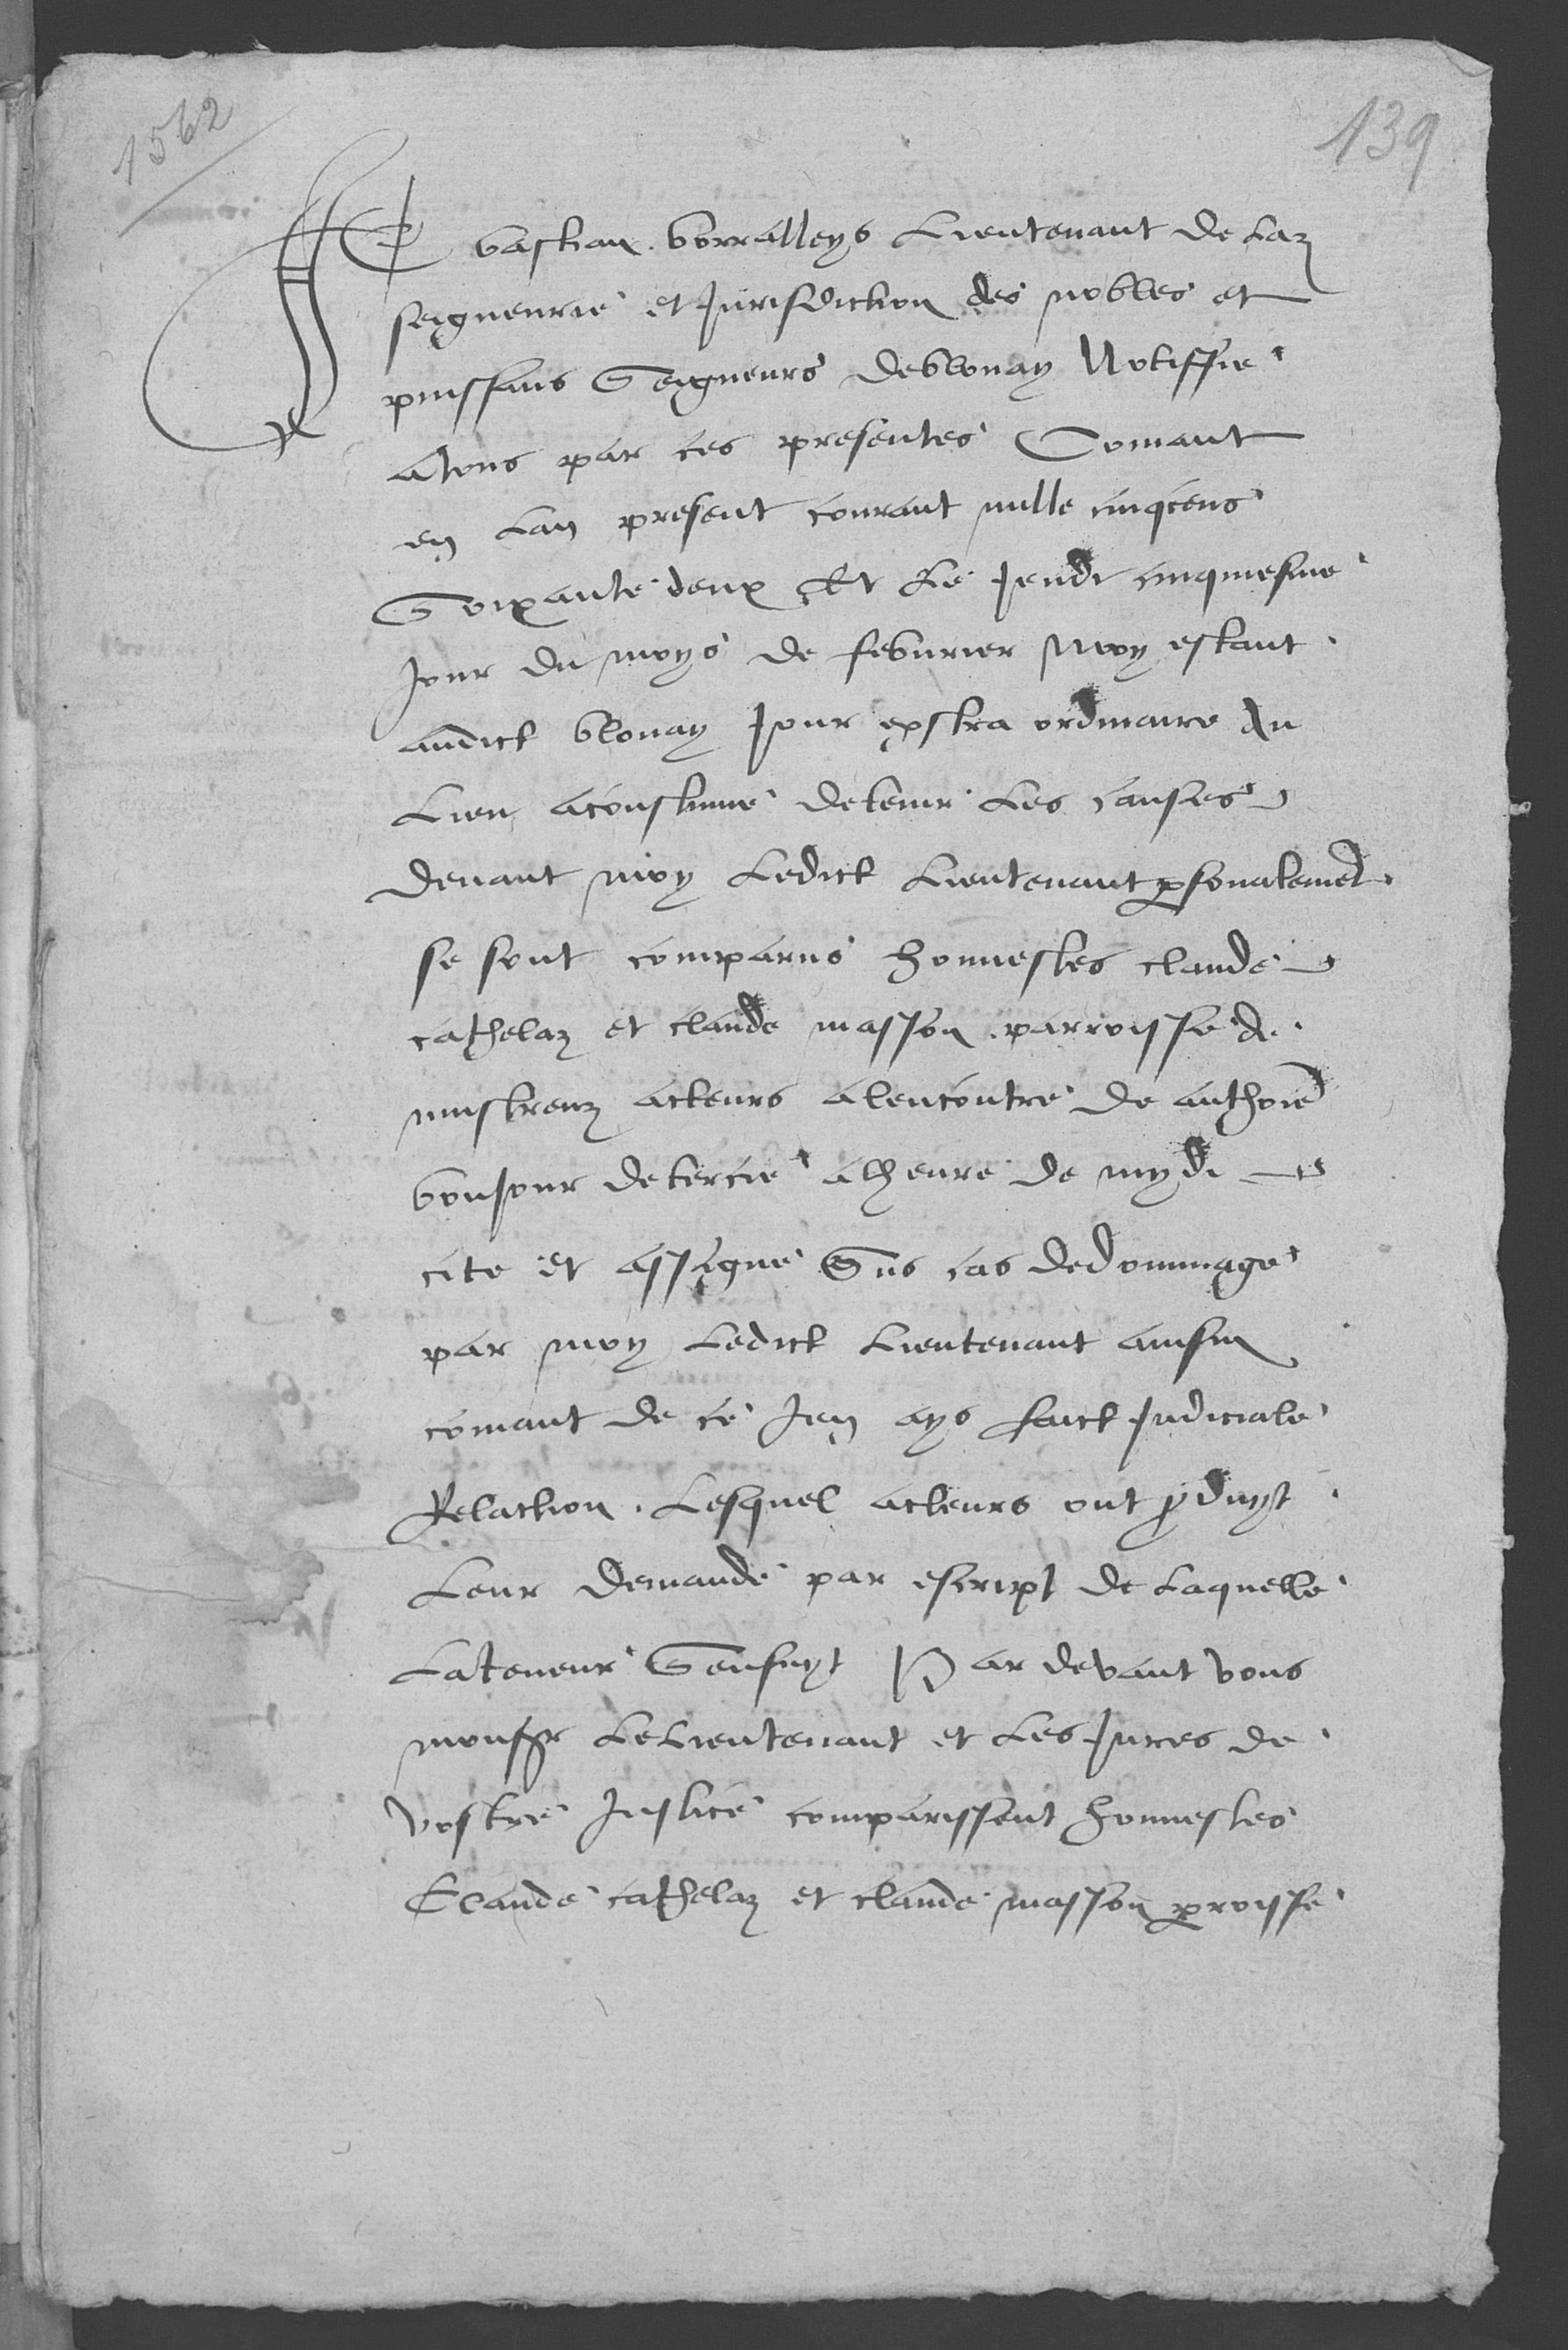 1562
139
Je bastian borralleys Lieutenant de Laz
seigneurie et Jurisdiction des nobles et
puissans Seigneurs deblonay Notiffie
atous par ces presentes Comant
en Lan present courant mille cinqcens
Soixante deux Et Le Jeudi cinquiesme
Jour du moys de feburier Moy estant
audict blonay Jour extra ordinaire Au
Lieu acoustume detenir Les causes
deuant moy Ledict Lieutenant psonalemet
se sont comparus honnestes claude
cathelaz et claude masson parroisse de
mustreuz acteurs alencontre de anthoie
bonJour detercie alheure de mydi
cite et assigne Sus cas dedommage
par moy Ledict Lieutenant ainsin
comant de ce Jen ays faict Judiciale
Relaction . Lesquel acteurs ont pduyt
Leur demande par escript de Laquelle
Lateneur Sensuyt Par devant vous
monsr LeLieutenant et Les Jures de
vostre Justice comparissent honnestes
Claude cathelaz et claude masson proisse